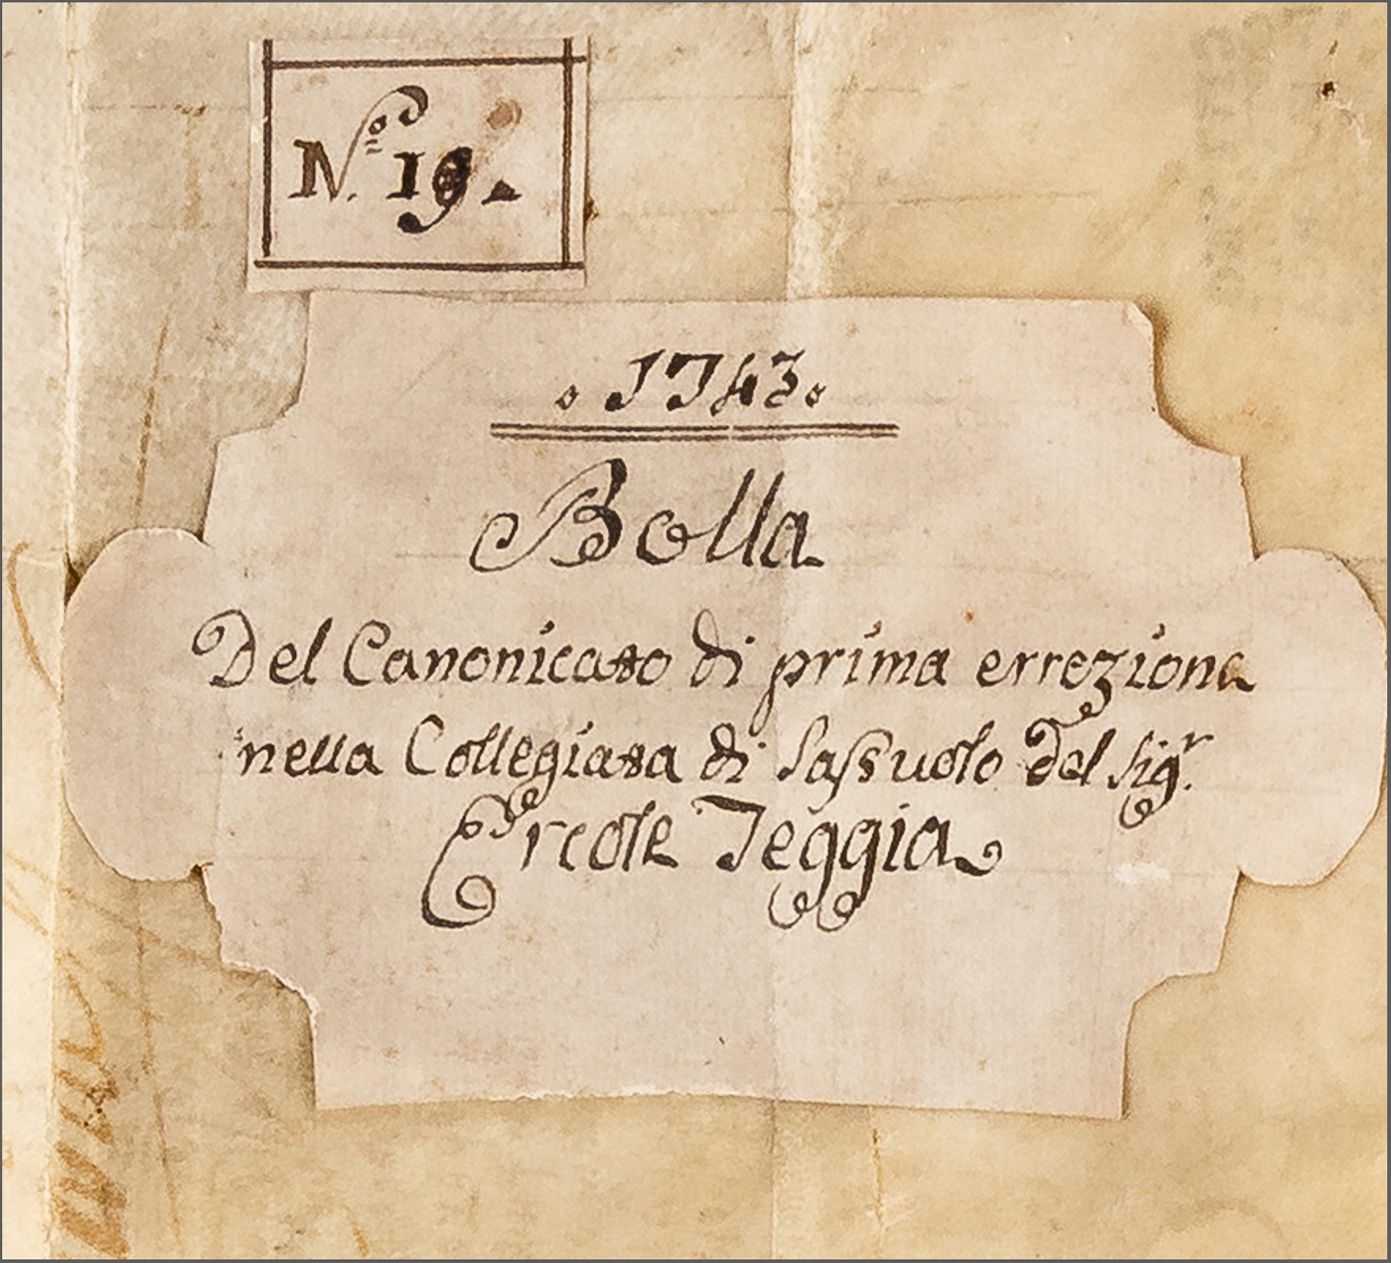 No 19.
1743
Bolla
Del Canonicato di prima errezione
nella Collegiata di Sassuolo del Sigr.
Ercole Teggia